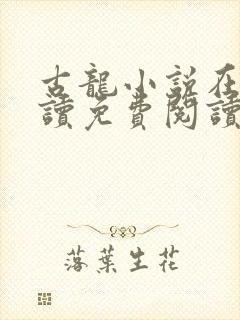 古龍小說在
讀免費閱讀
落葉生花